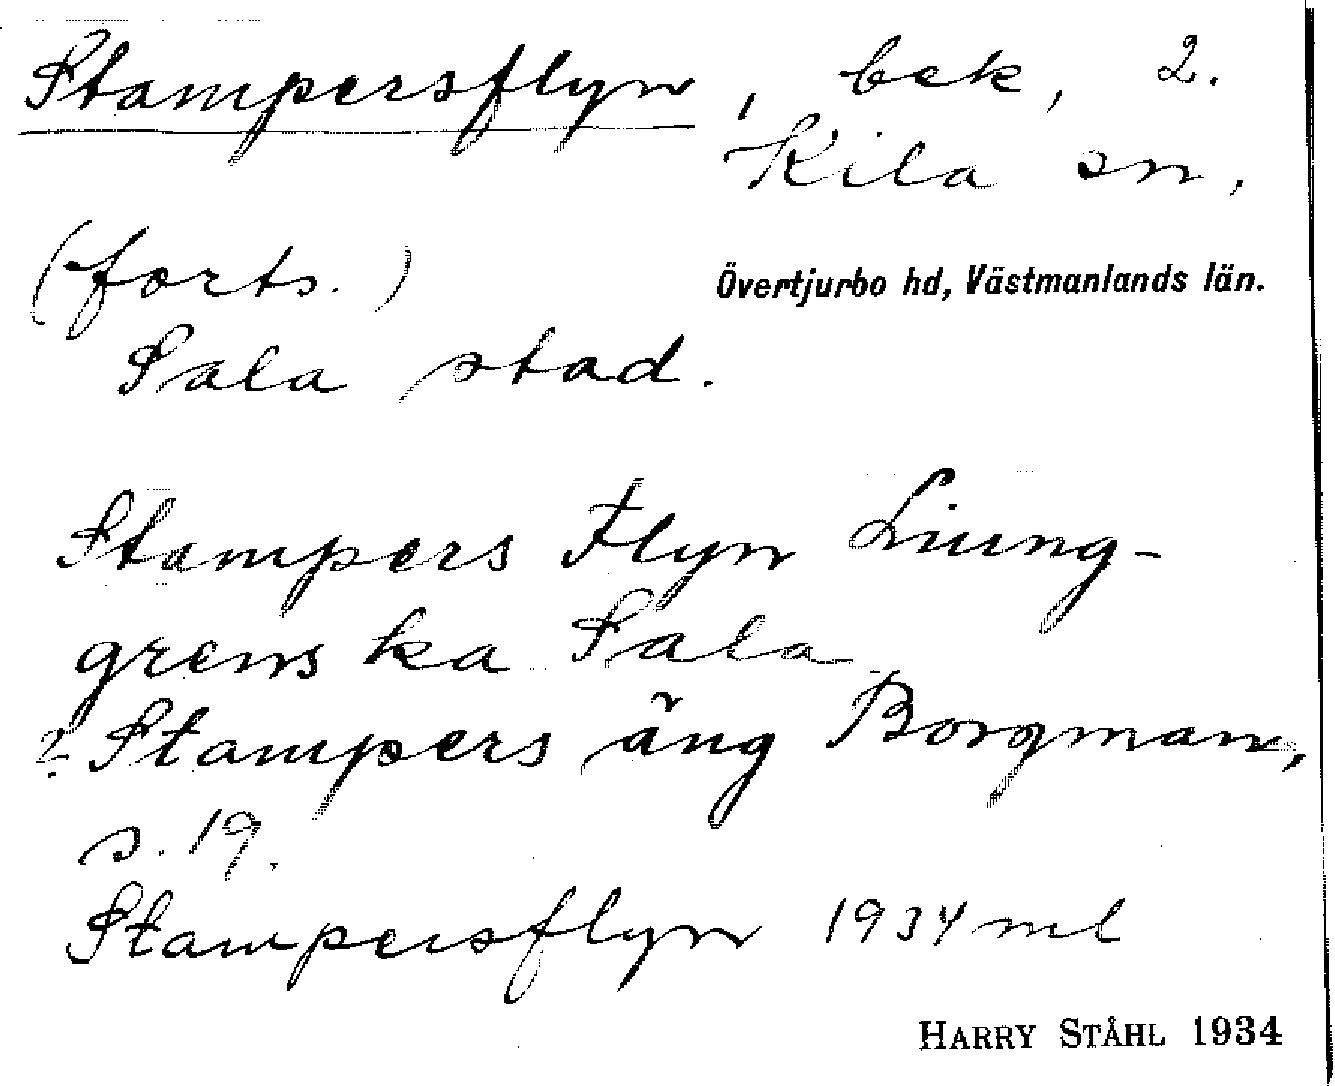 Stampersflyn, bek, 2.
Kila sn,
(forts.)
Övertjurbo hd, Västmanlands län.
Sala stad.
Stampers Flyn Liung-
grens ka Sala
? Stampers äng Borgman,
s. 19.
Stampersflyn 1934 ml
HARRY STÅHL 1934